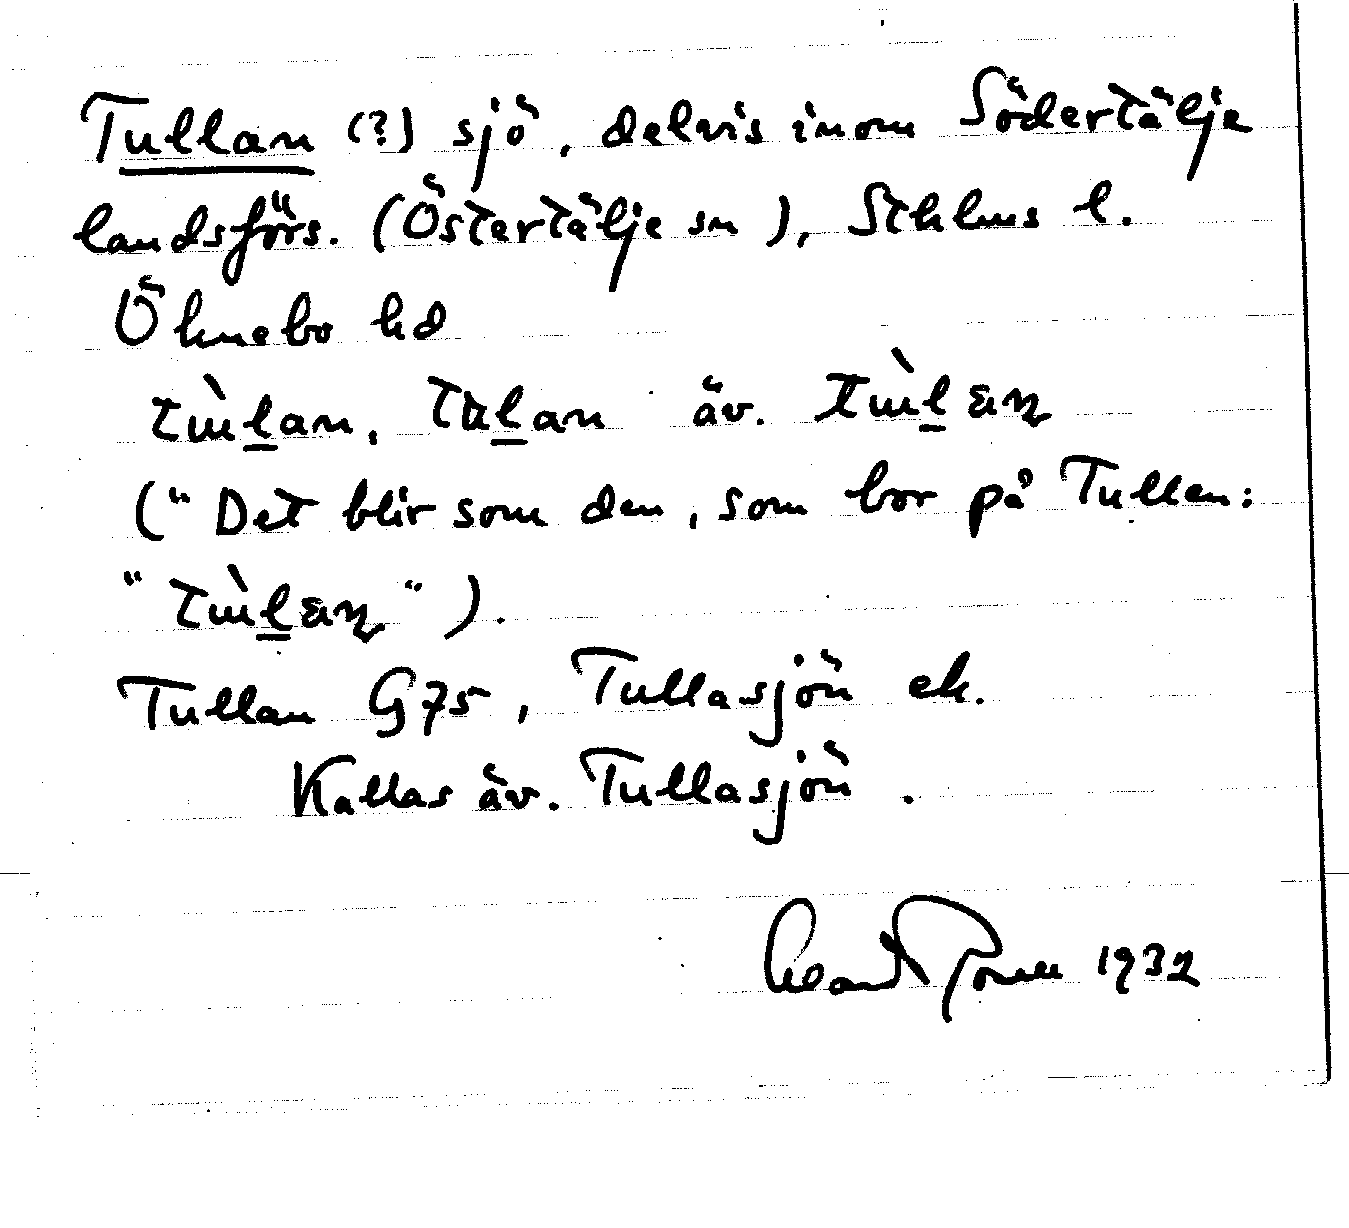 Tullan (?) sjö, delvis inom Södertälje
landsförs. (Östertälje sn), Sthlms l.
Öknebo hd
av.
("Det blir som den, som bor på Tullen:
Tullan G75, Tullasjön ek.
Kallas äv. Tullasjön.
1932